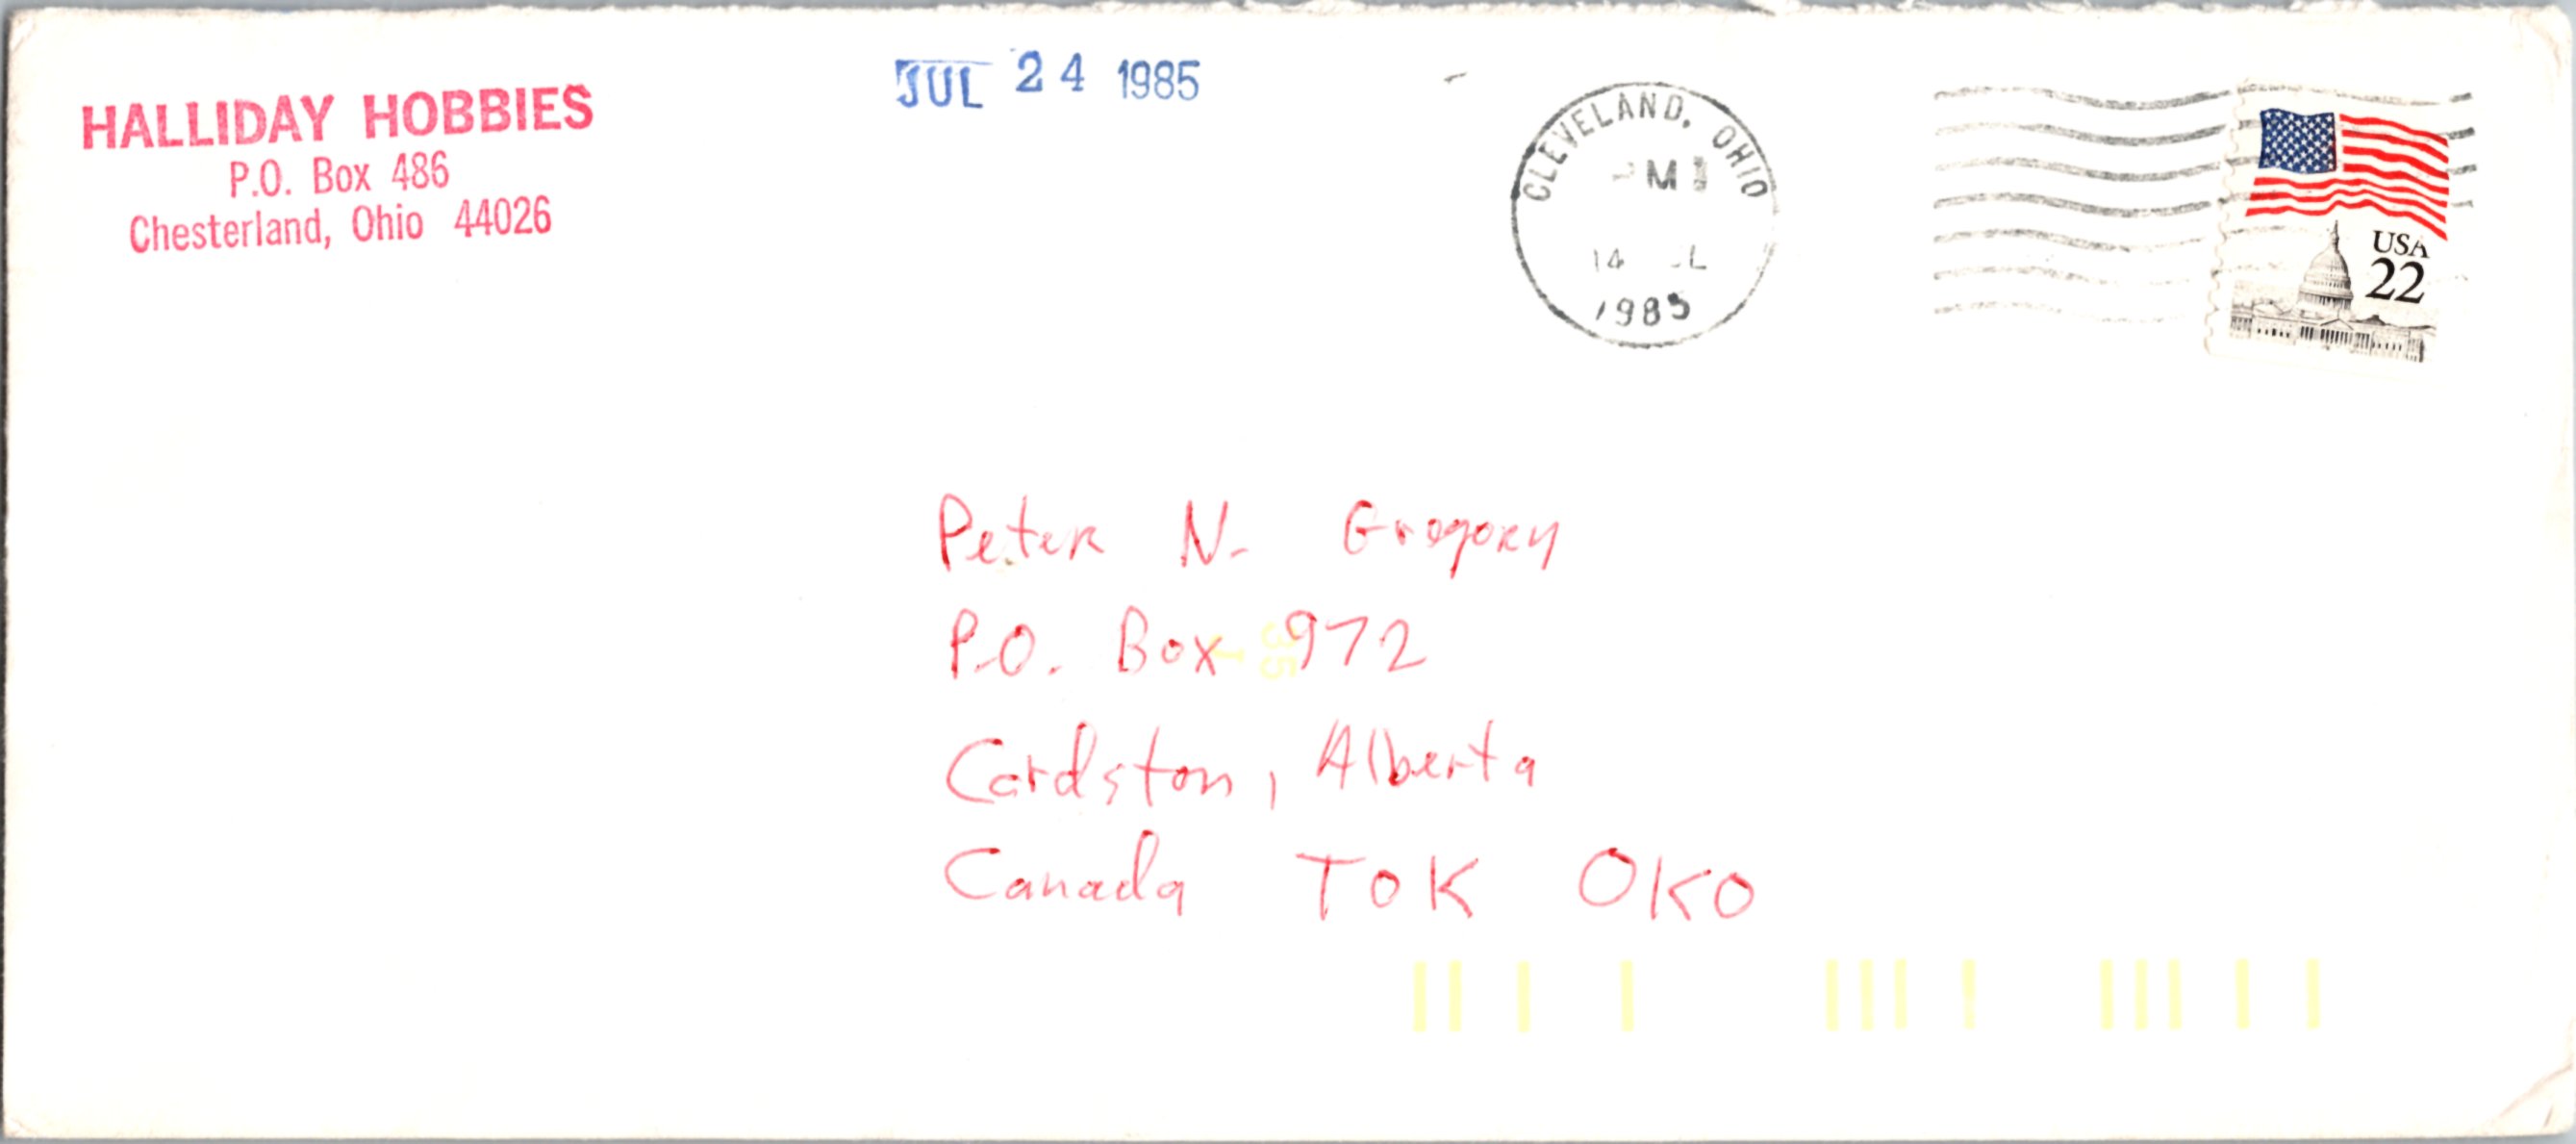 HALLIDAY HOBBIES
P.O. Box 486
Chesterland, Ohio 44026
JUL 24 1985
CLEVELAND, OHIO
PM
14
1985
USA
22
Peter N. Gregory
P.O. Box 972
35
Cardston, Alberta
Canada T0K 0K0